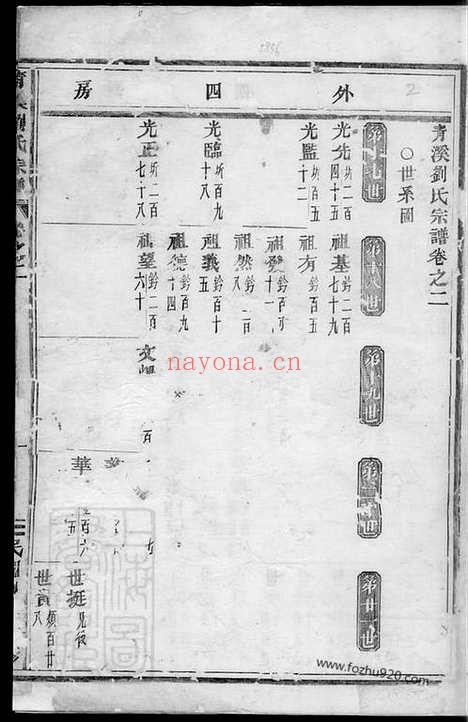 5836
2
外四房
青溪劉氏宗譜卷之二
○世系圖
第十七世
第十八世
第十九世
第二十世
第廿一世
光先 圻二百四十五
祖基 鈐二百七十九
光監 圻百五十二
祖有 鈐百五
祖發 鈐百十一
祖然 鈐百八
光臨 圻百九十八
祖義 鈐百十五
祖德 鈐百九十四
光正 圻二百七十八
祖望 鈐二百六十
文
百
華
世挺 兄後
世資 煩百廿八
nayona.cn
www.fozhu920.com